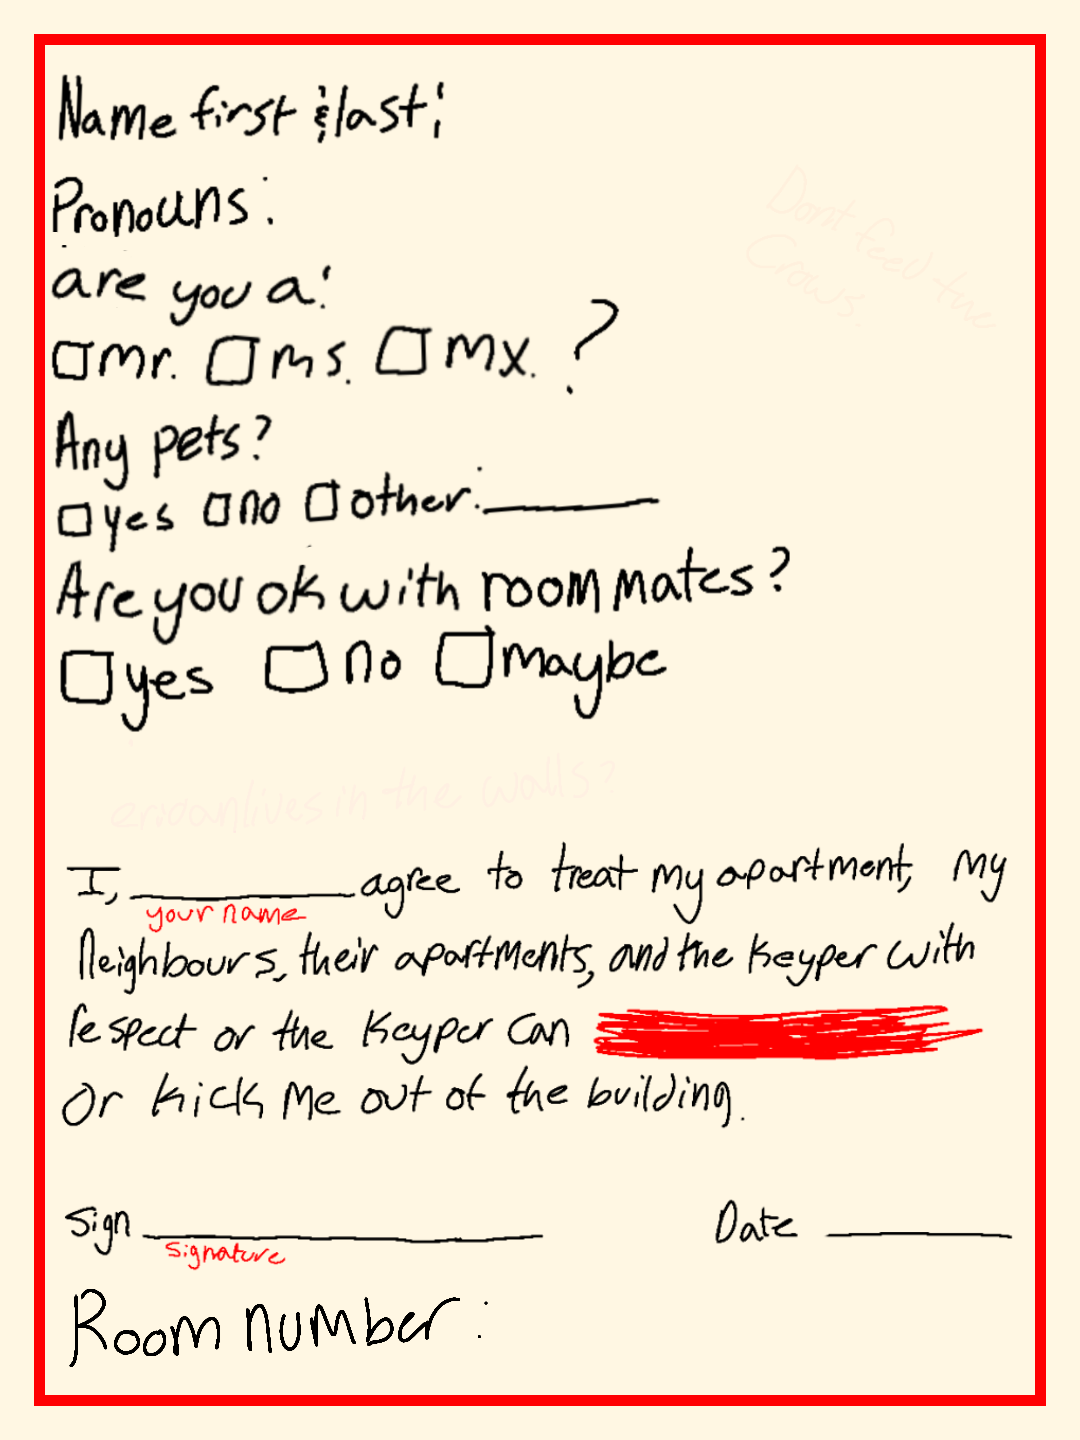 Name first & last:
Pronouns:
Dont feed the
Crows.
are you a:
mr. ms. mx. ?
Any pets?
yes no other:
Are you ok with roommates?
yes no maybe
lives in the walls?
I, agree to treat my apartment, my
your name
Neighbours, their apartments, and the Keyper with
respect or the Keyper Can
Or kick Me out of the building.
Sign Date
signature
Room number: